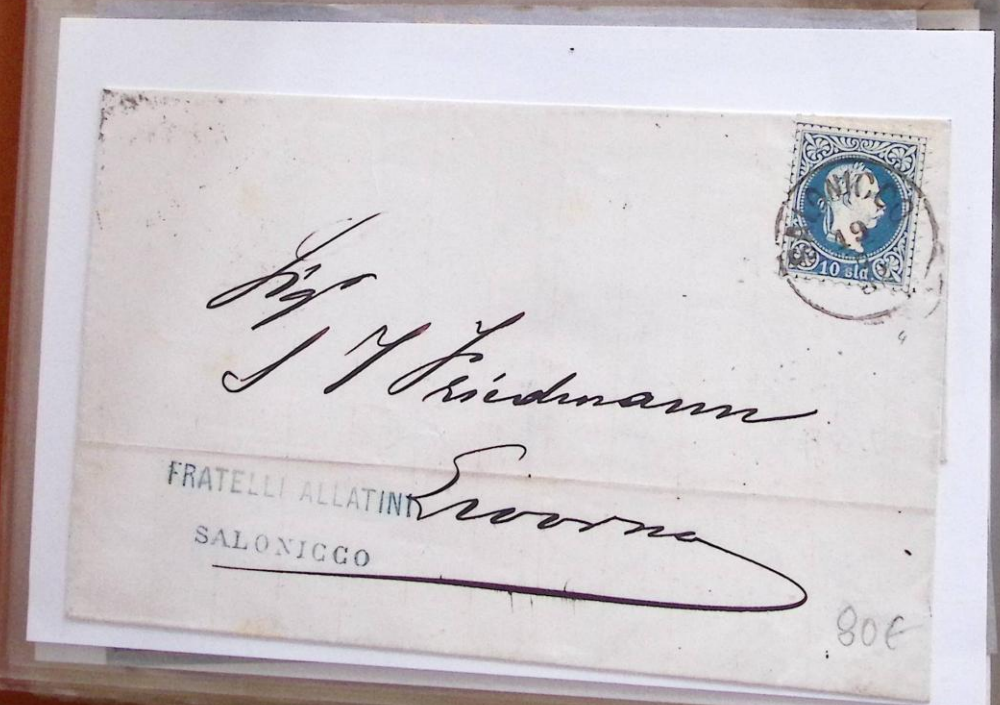 SALONICCO
19
10 sld
Sigr
S J Friedmann
Livorno
FRATELLI ALLATINI
SALONICCO
80€